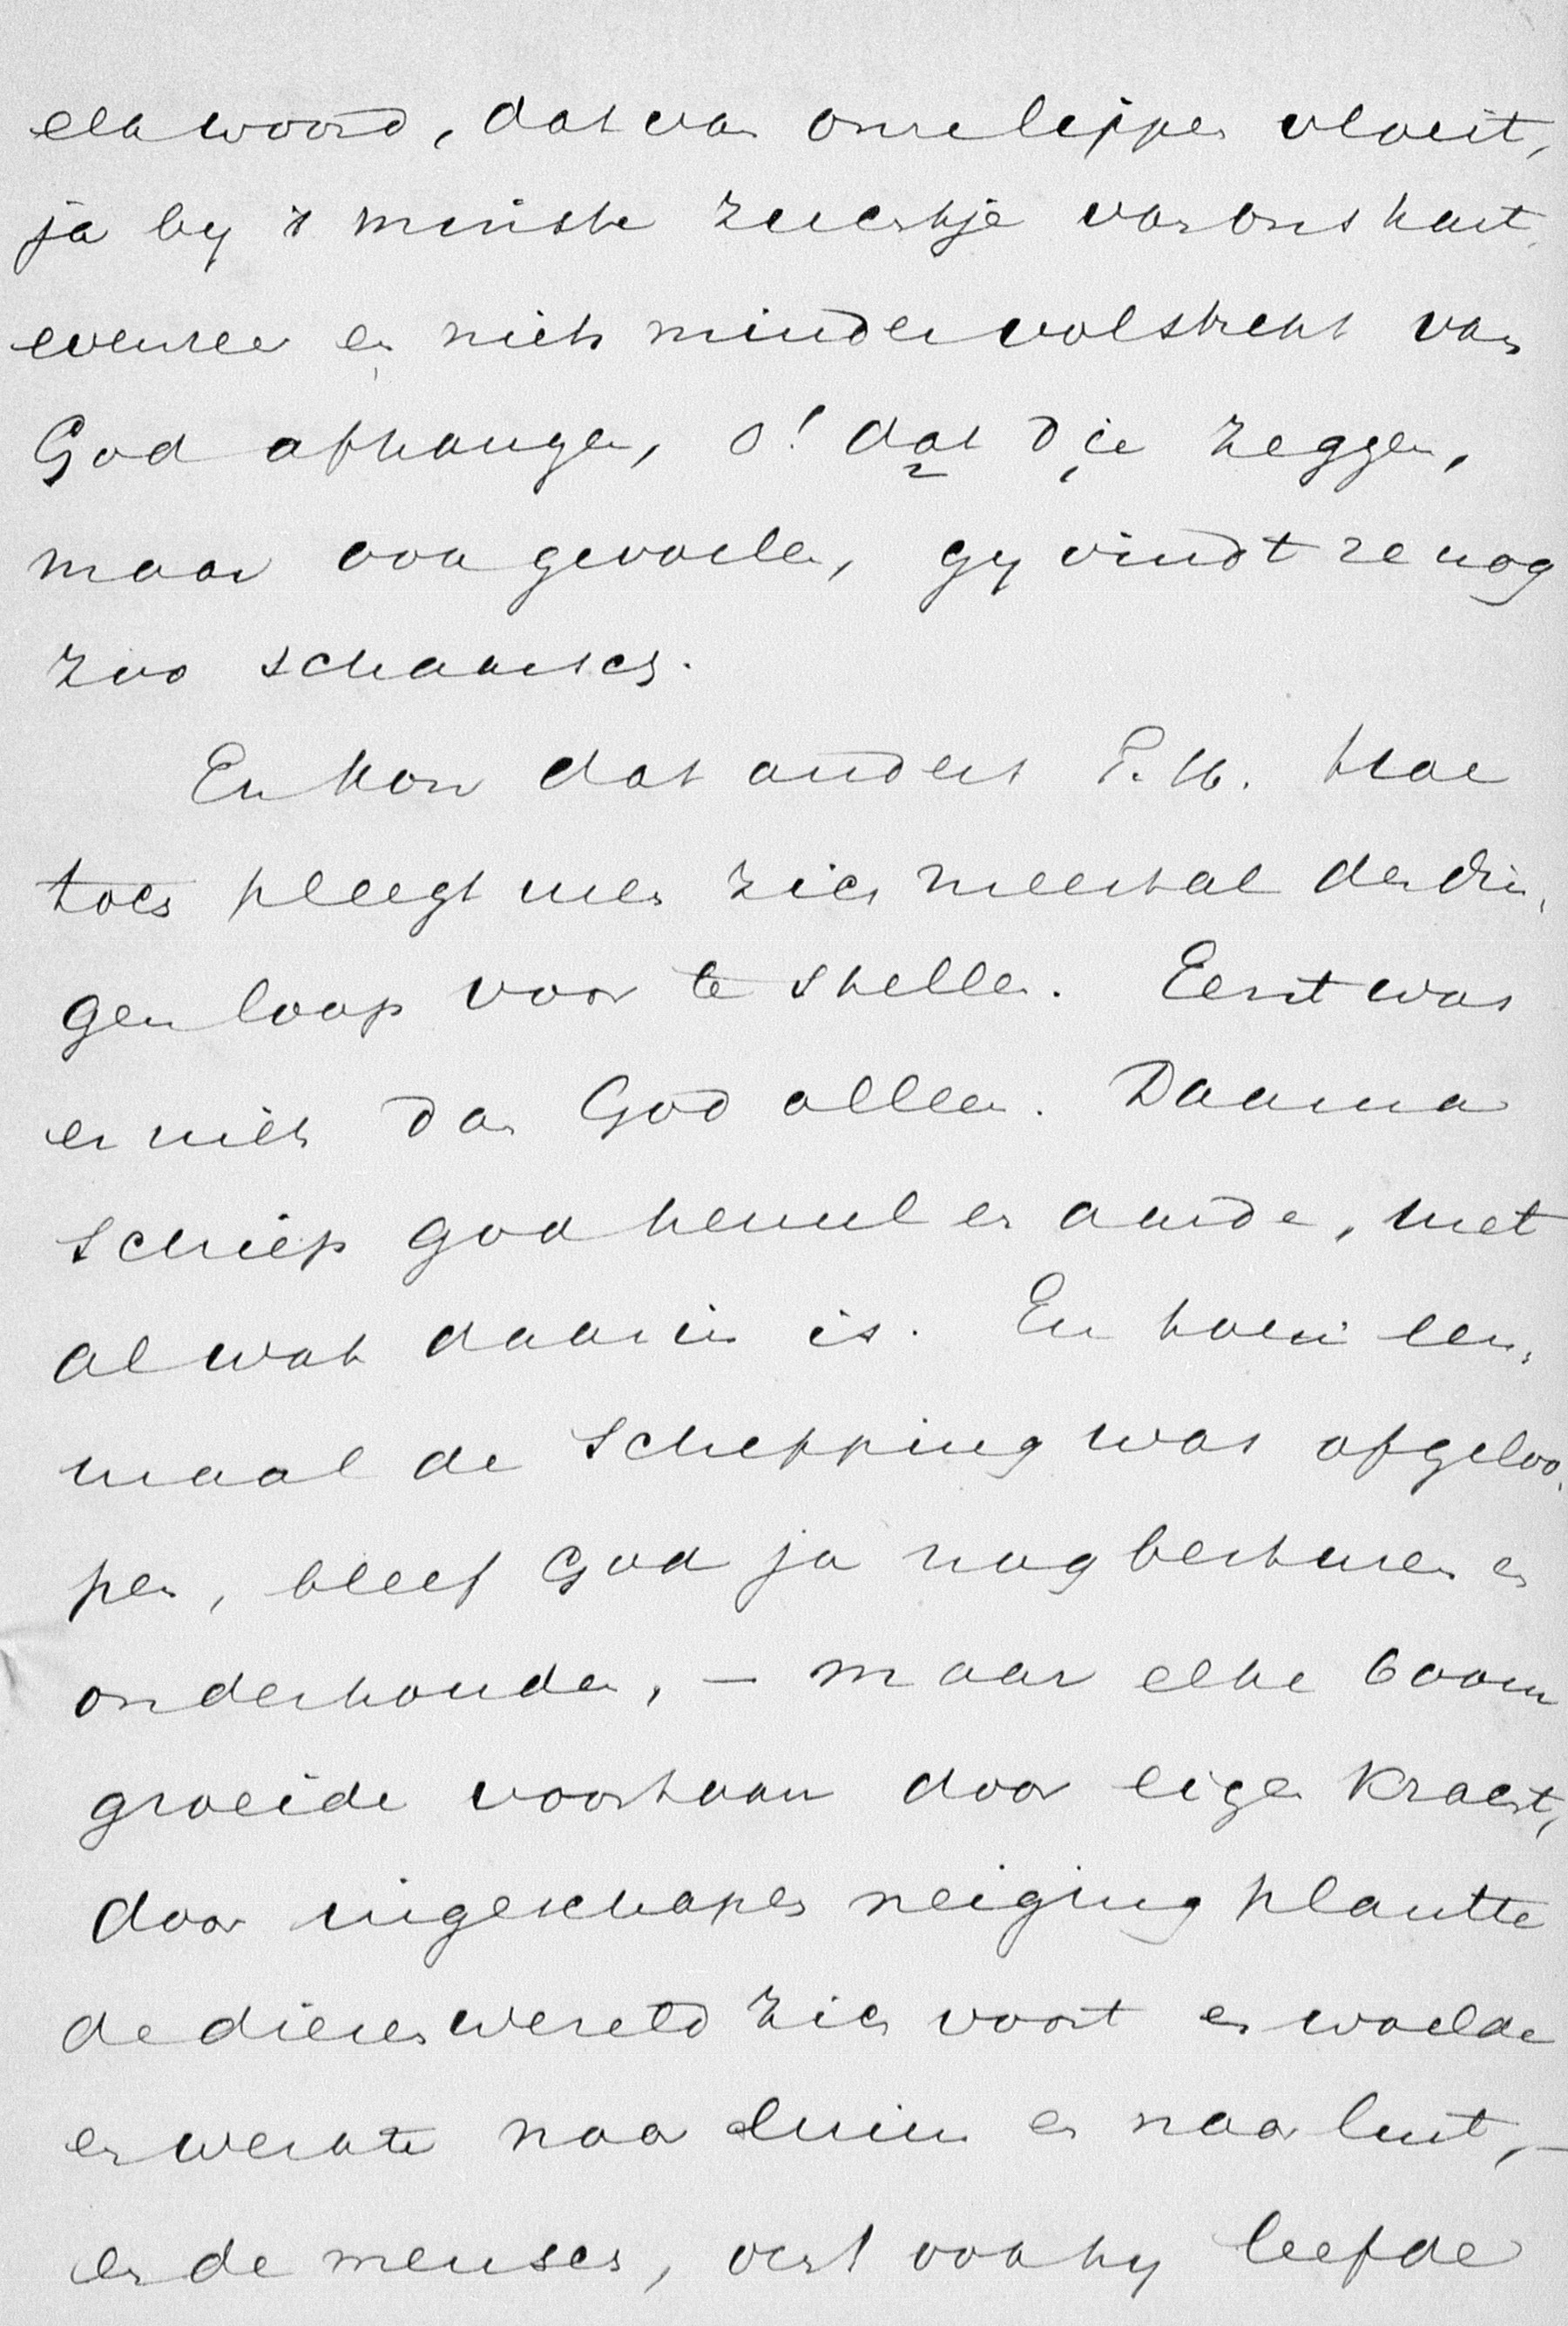 elk woord, dat van onze lippen vloeit,
ja by 't minste zuchtje van ons hart
evenzeer en niets minder volstrekt van
God afhangen, o! dat die zeggen,
maar ook gevoelen, gy vindt ze nog
zoo schaarsch.
En kon dat anders P. H. Hoe
toch pleegt men zich meestal der din,
gen loop voor te stellen. Eerst was
er niets dan God alleen. Daarna
schiep God hemel en aarde, met
al wat daarin is. En toen een,
maal de schepping was afgeloo,
pen, bleef God ja nog besturen en
onderhouden, – maar elke boom
groeide voortaan door eigen kracht,
door ingeschapen neiging plantte
de dierenwereld zich voort en woelde
en werkte naar luim en naar lust, –
en de mensch, och ook hy leefde